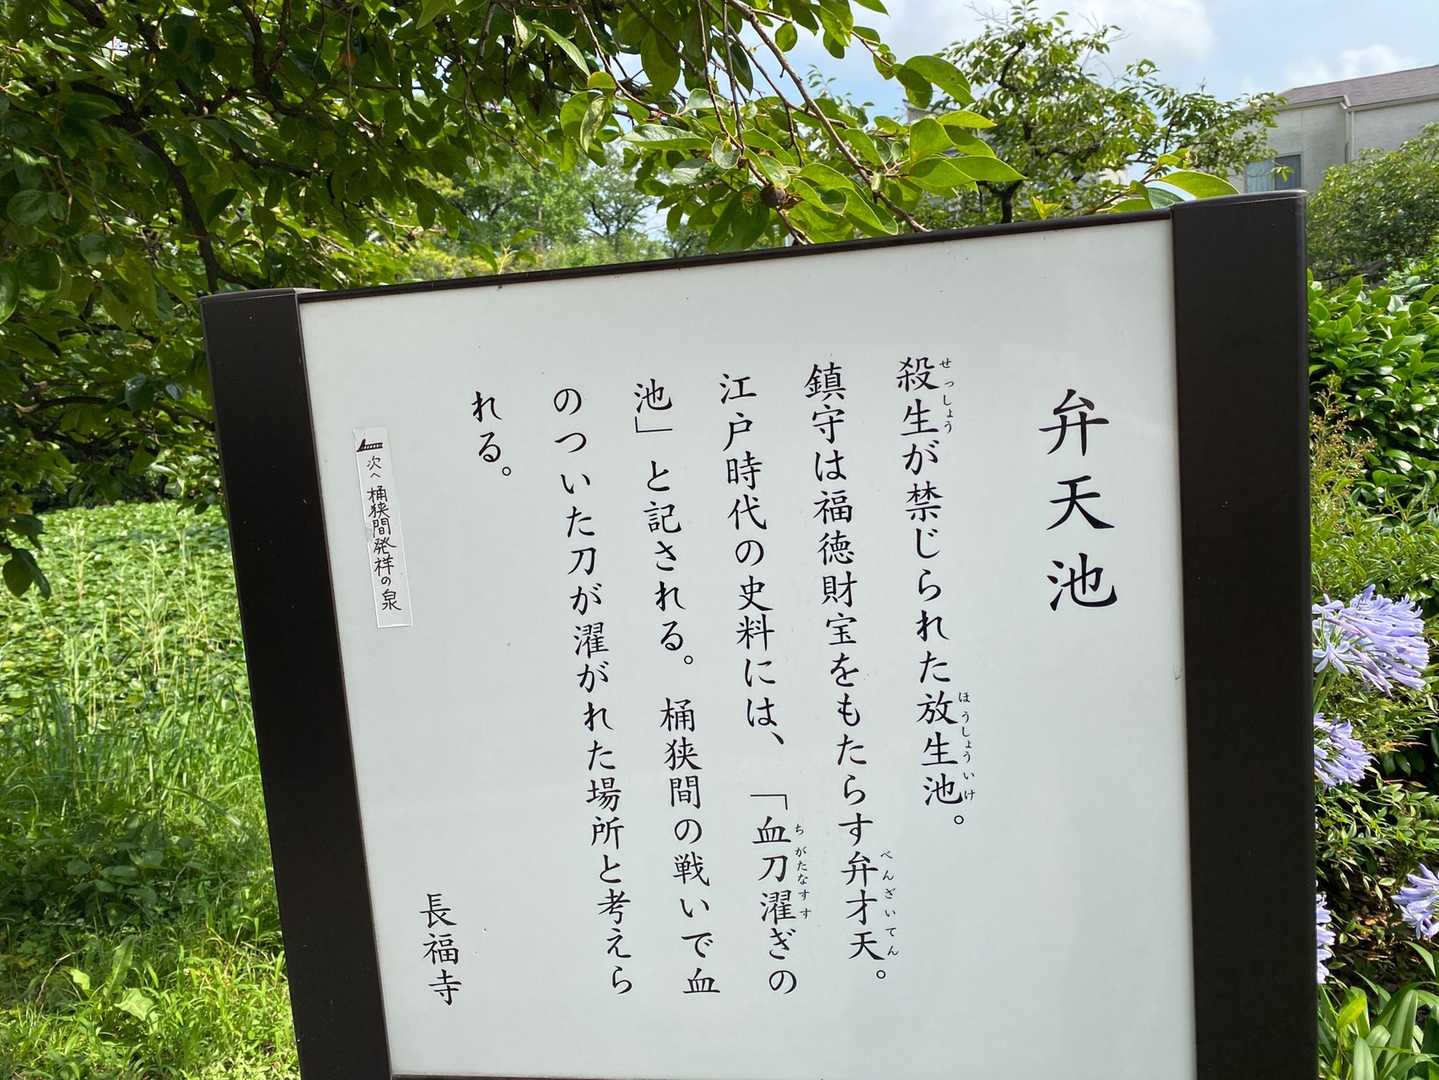 弁天池
殺生が禁じられた放生池。
せっしょう
ほうしょういけ
鎮守は福徳財宝をもたらす弁才天。
べんざいてん
江戸時代の史料には、「血刀濯ぎの
ちがたなすす
池」と記される。桶狭間の戦いで血
のついた刀が濯がれた場所と考えら
れる。
長福寺
次へ 桶狭間発祥の泉